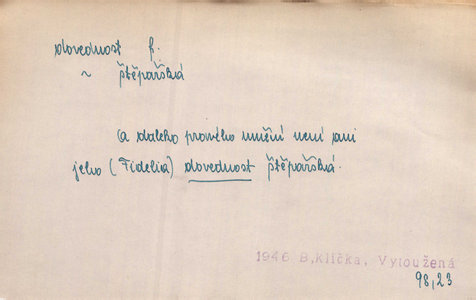 dovednost f.
~ štěpařská
a daleko pravého umění není ani
jeho (Fidelia) dovednost štěpařská.
1946 B.Klička, Vytoužená
98,23